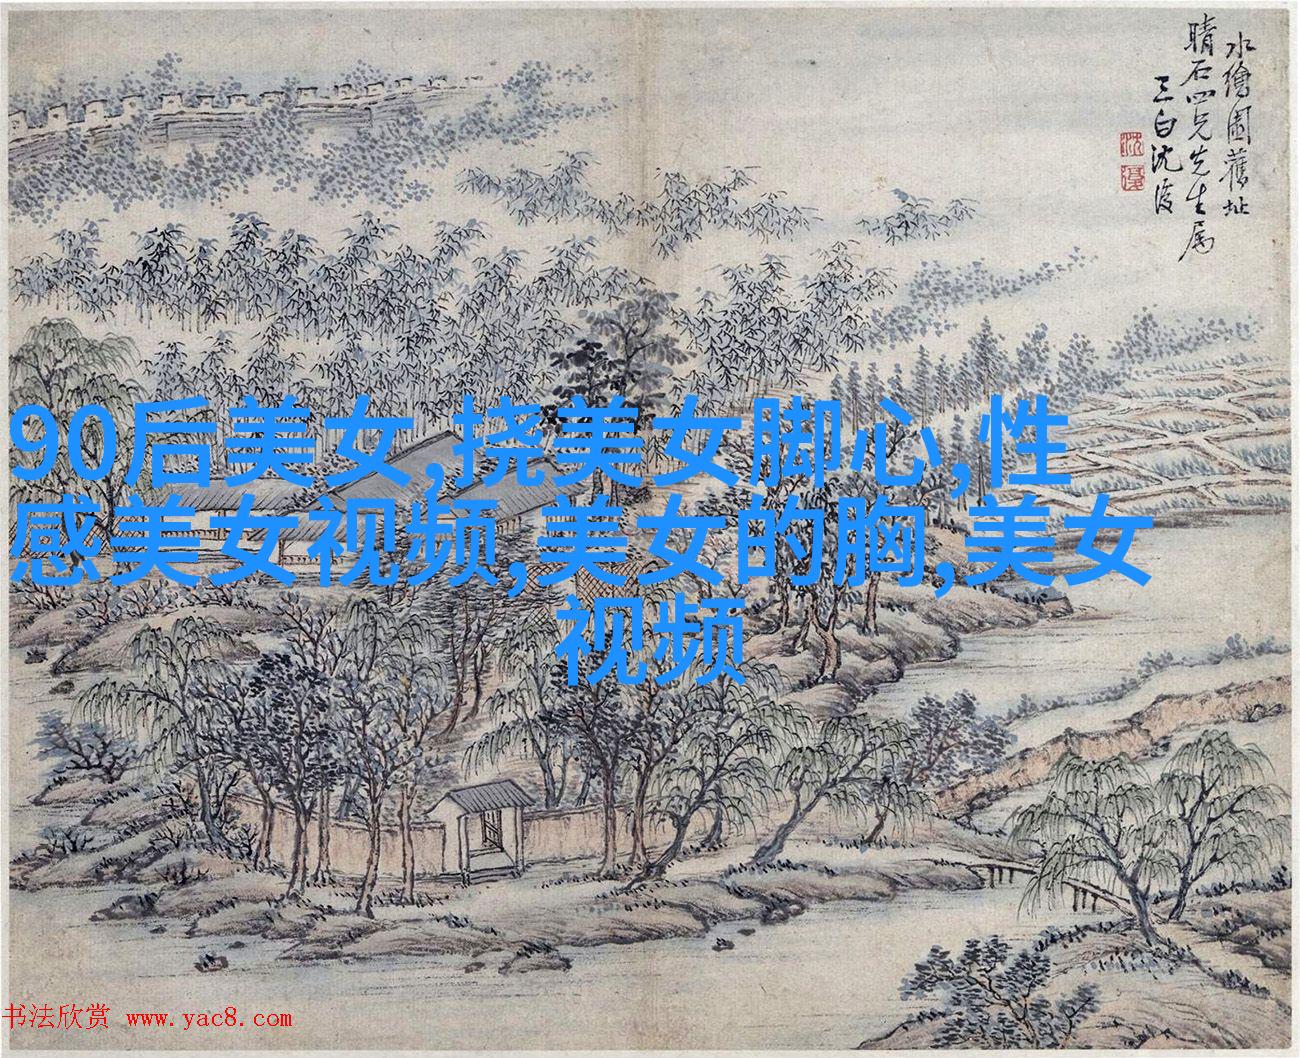 水繪園舊址
晴石四兄先生属
三白沈復
沈
復
90后美女,挠美女脚心,性
感美女视频,美女的胸,美女
视频
书法欣赏 www.yac8.com